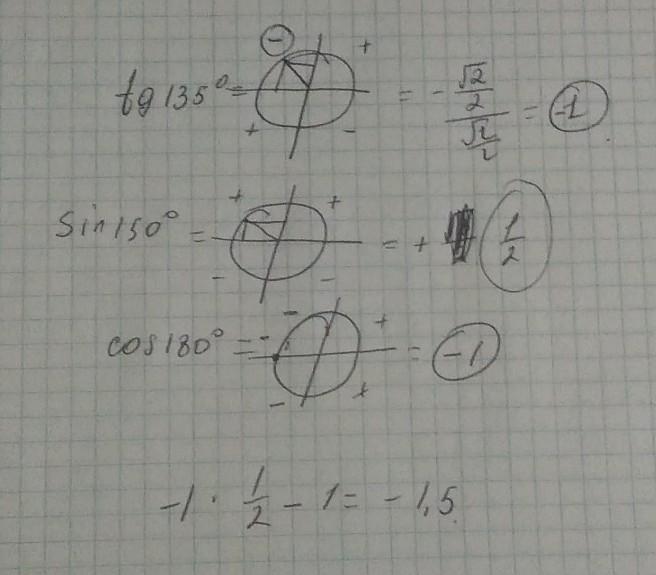 tg 135° = - + + - = - (√2/2)/(√2/2) = -1
sin 150° = + + - - = + 1/2
cos 180° = - - + - + = -1
-1 · 1/2 - 1 = - 1,5